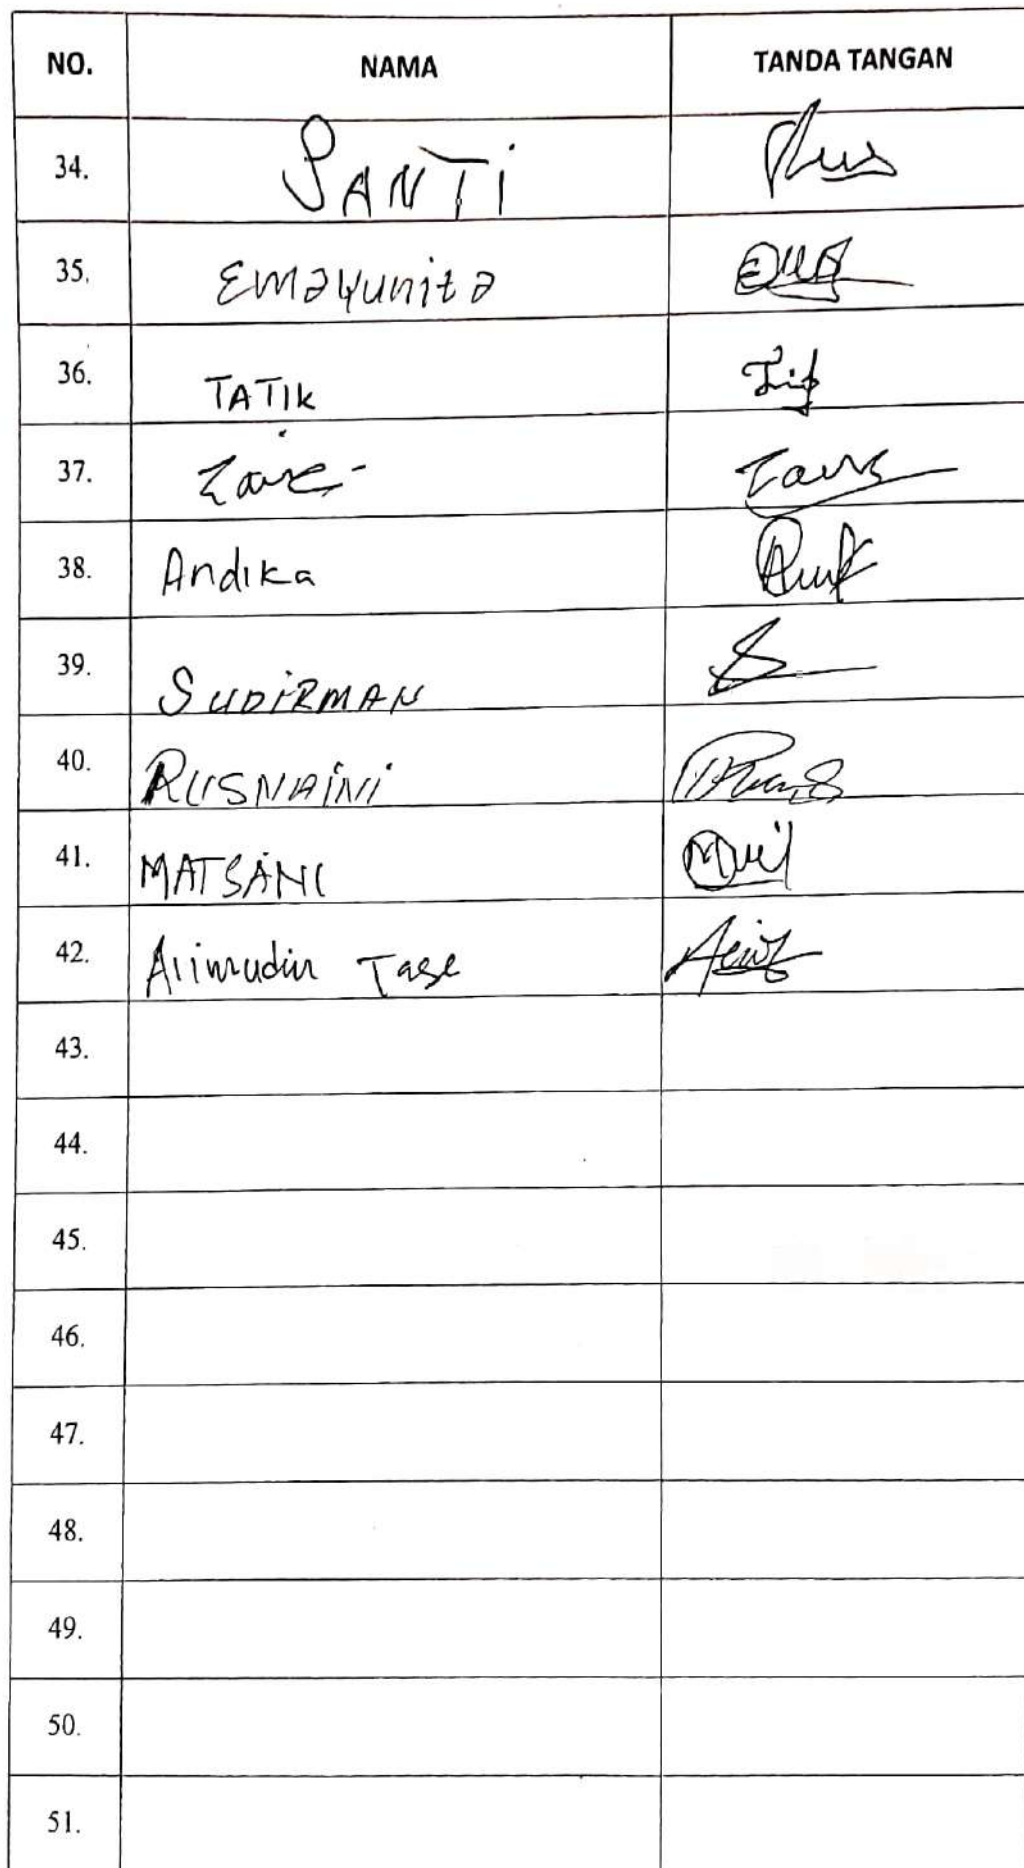 NO. NAMA TANDA TANGAN
34. SANTi
35. Emayunita
36. TATIK
37.
38. Andika
39. SUDiRMAN
40. RUSNAiNi
41. MATSANI
42. Alimudin Tase
43.
44.
45.
46.
47.
48.
49.
50.
51.